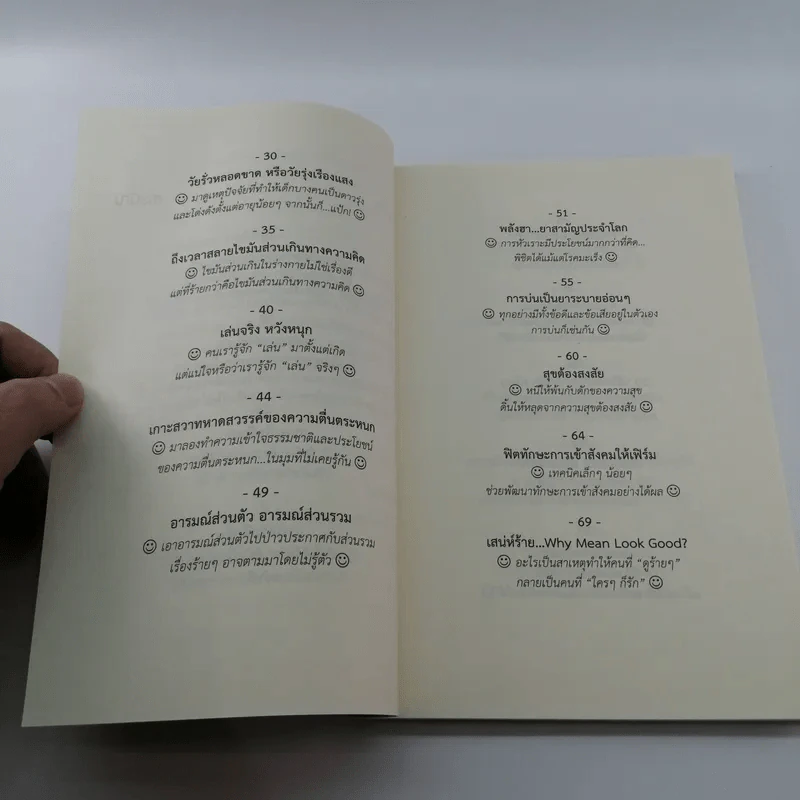 - 30 -
วัยรั่วหลอดขาด หรือวัยรุ่งเรืองแสง
☺ มาดูเหตุปัจจัยที่ทำให้เด็กบางคนเป็นดาวรุ่ง
และโด่งดังตั้งแต่อายุน้อยๆ จากนั้นก็...แป้ก! ☺
- 35 -
ถึงเวลาสลายไขมันส่วนเกินทางความคิด
☺ ไขมันส่วนเกินในร่างกายไม่ใช่เรื่องดี
แต่ที่ร้ายกว่าคือไขมันส่วนเกินทางความคิด ☺
- 40 -
เล่นจริง หวังหนุก
☺ คนเรารู้จัก “เล่น” มาตั้งแต่เกิด
แต่แน่ใจหรือว่าเรารู้จัก “เล่น” จริงๆ ☺
- 44 -
เกาะสวาทหาดสวรรค์ของความตื่นตระหนก
☺ มาลองทำความเข้าใจธรรมชาติและประโยชน์
ของความตื่นตระหนก...ในมุมที่ไม่เคยรู้กัน ☺
- 49 -
อารมณ์ส่วนตัว อารมณ์ส่วนรวม
☺ เอาอารมณ์ส่วนตัวไปป่าวประกาศกับส่วนรวม
เรื่องร้ายๆ อาจตามมาโดยไม่รู้ตัว ☺
- 51 -
พลังฮา...ยาสามัญประจำโลก
☺ การหัวเราะมีประโยชน์มากกว่าที่คิด...
พิชิตได้แม้แต่โรคมะเร็ง ☺
- 55 -
การบ่นเป็นยาระบายอ่อนๆ
☺ ทุกอย่างมีทั้งข้อดีและข้อเสียอยู่ในตัวเอง
การบ่นก็เช่นกัน ☺
- 60 -
สุขต้องสงสัย
☺ หนีให้พ้นกับดักของความสุข
ดิ้นให้หลุดจากความสุขต้องสงสัย ☺
- 64 -
ฟิตทักษะการเข้าสังคมให้เฟิร์ม
☺ เทคนิคเล็กๆ น้อยๆ
ช่วยพัฒนาทักษะการเข้าสังคมอย่างได้ผล ☺
- 69 -
เสน่ห์ร้าย...Why Mean Look Good?
☺ อะไรเป็นสาเหตุทำให้คนที่ “ดูร้ายๆ”
กลายเป็นคนที่ “ใครๆ ก็รัก” ☺